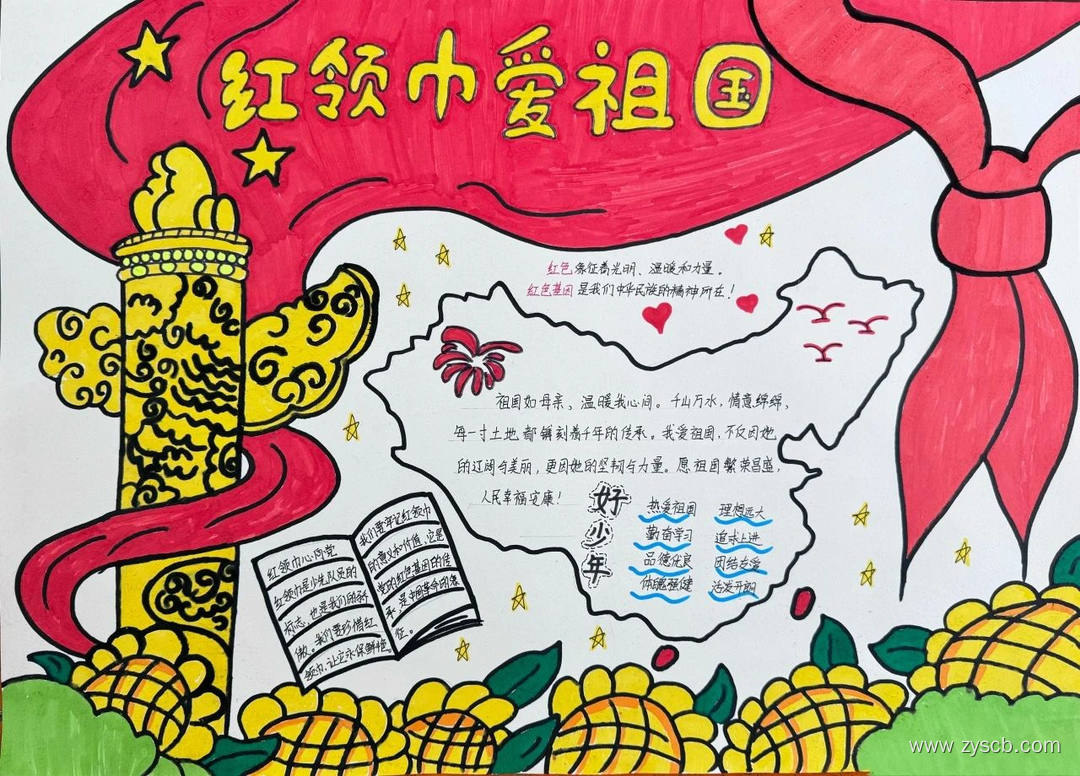 红领巾爱祖国
红色象征着光明、温暖和力量。
红色基因是我们中华民族的精神所在！
祖国如母亲，温暖我心间。千山万水，情意绵绵，
每一寸土地都镌刻着千年的传承。我爱祖国，不仅因她
的辽阔与美丽，更因她的坚韧与力量。愿祖国繁荣昌盛，
人民幸福安康！
好少年
热爱祖国 理想远大
勤奋学习 追求上进
品德优良 团结友爱
体魄强健 活泼开朗
红领巾心向党
红领巾是少先队员的
标志，也是我们的骄
傲。我们要珍惜红
领巾，让它永保鲜艳。
我们要牢记红领巾
的意义和价值，它是
党的红色基因的传
承，是中国革命的象
征。
www.zyscb.com